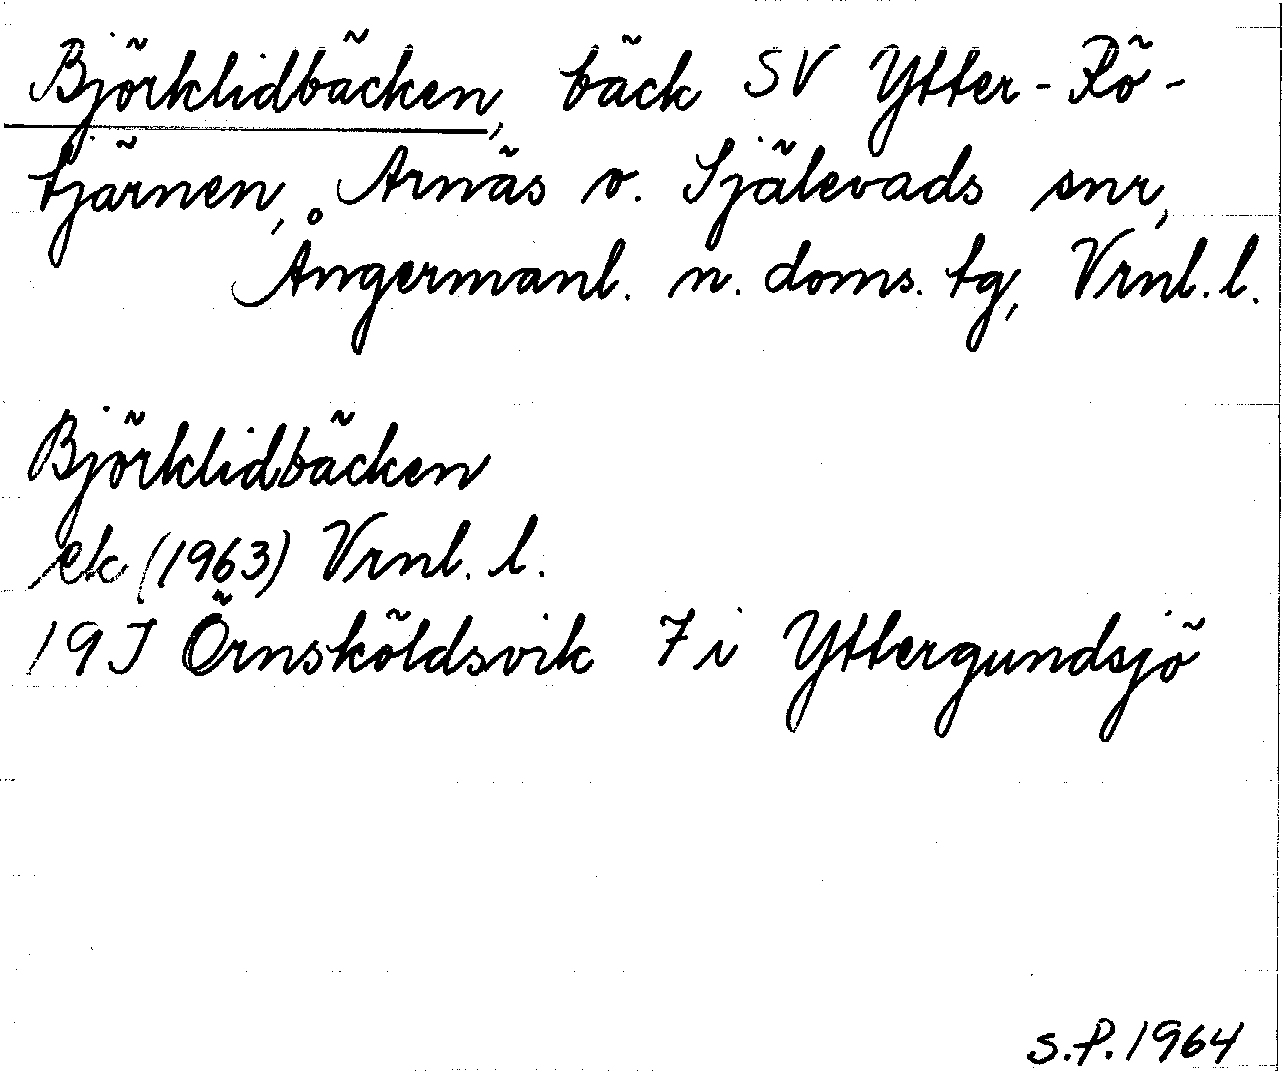 Björklidbäcken, bäck SV Ytter-Rö-
tjärnen, Arnäs o. Själevads snr,
Ångermanl. n. doms. tg, Vrnl. l.
Björklidbäcken
ek (1963) Vrnl. l.
19J Örnsköldsvik 7 i Yttergundsjö
S.P. 1964